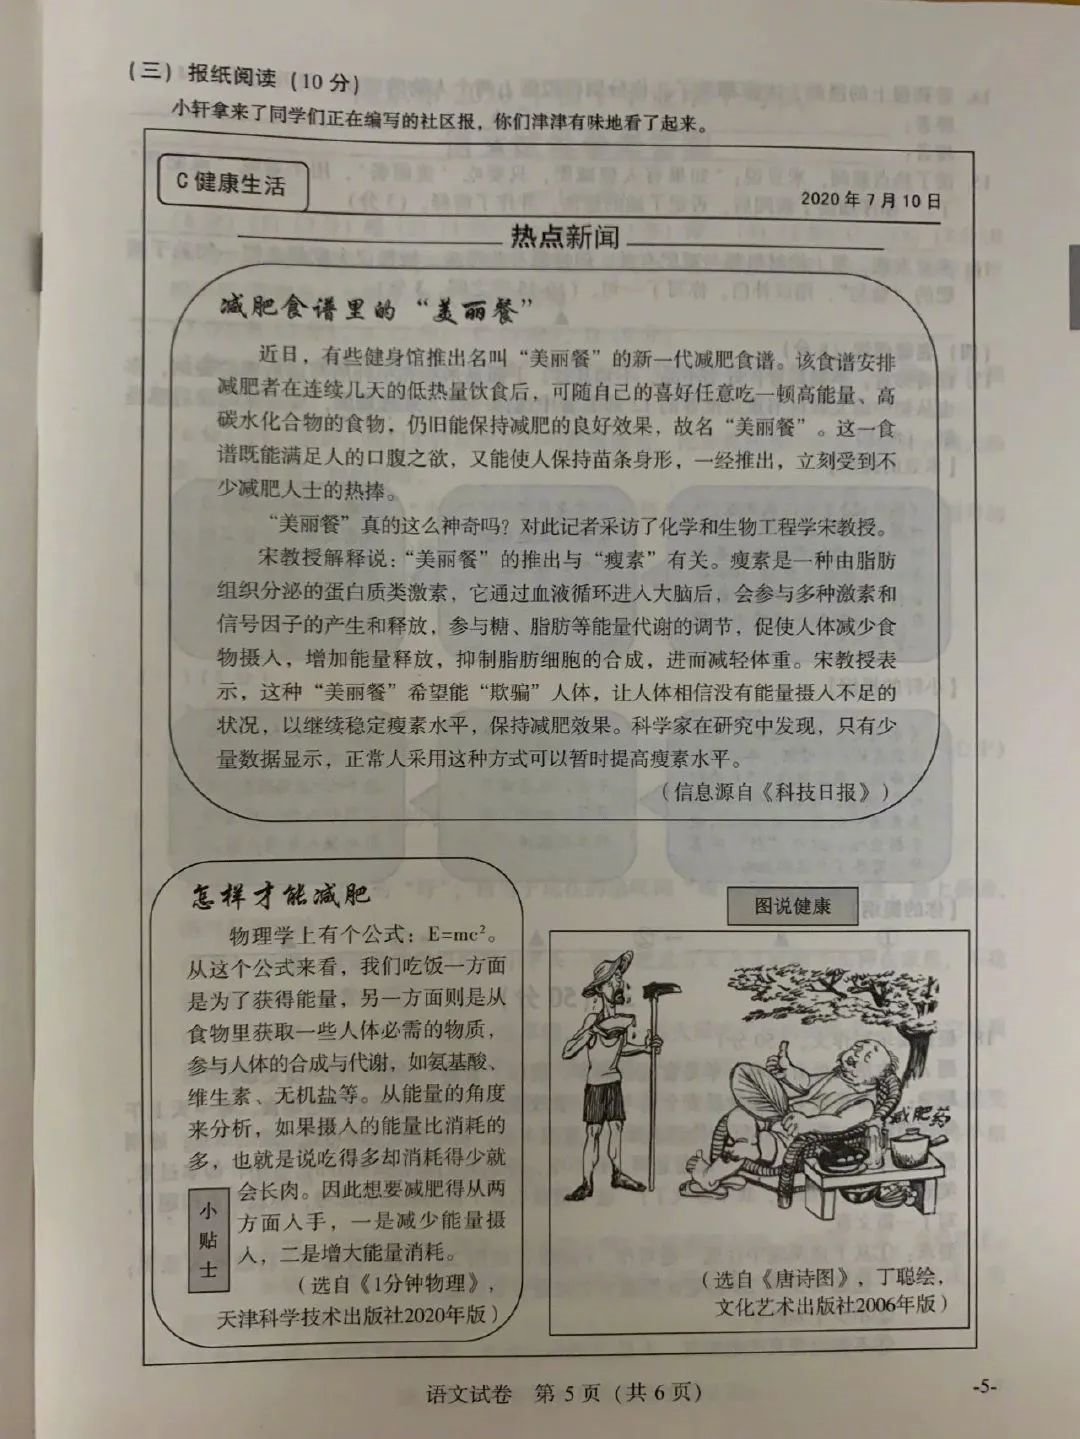 （三）报纸阅读（10分）
小轩拿来了同学们正在编写的社区报，你们津津有味地看了起来。
C 健康生活
2020年7月10日
热点新闻
减肥食谱里的“美丽餐”
近日，有些健身馆推出名叫“美丽餐”的新一代减肥食谱。该食谱安排
减肥者在连续几天的低热量饮食后，可随自己的喜好任意吃一顿高能量、高
碳水化合物的食物，仍旧能保持减肥的良好效果，故名“美丽餐”。这一食
谱既能满足人的口腹之欲，又能使人保持苗条身形，一经推出，立刻受到不
少减肥人士的热捧。
“美丽餐”真的这么神奇吗？对此记者采访了化学和生物工程学宋教授。
宋教授解释说：“美丽餐”的推出与“瘦素”有关。瘦素是一种由脂肪
组织分泌的蛋白质类激素，它通过血液循环进入大脑后，会参与多种激素和
信号因子的产生和释放，参与糖、脂肪等能量代谢的调节，促使人体减少食
物摄入，增加能量释放，抑制脂肪细胞的合成，进而减轻体重。宋教授表
示，这种“美丽餐”希望能“欺骗”人体，让人体相信没有能量摄入不足的
状况，以继续稳定瘦素水平，保持减肥效果。科学家在研究中发现，只有少
量数据显示，正常人采用这种方式可以暂时提高瘦素水平。
（信息源自《科技日报》）
怎样才能减肥
物理学上有个公式：E=mc²。
从这个公式来看，我们吃饭一方面
是为了获得能量，另一方面则是从
食物里获取一些人体必需的物质，
参与人体的合成与代谢，如氨基酸、
维生素、无机盐等。从能量的角度
来分析，如果摄入的能量比消耗的
多，也就是说吃得多却消耗得少就
会长肉。因此想要减肥得从两
方面入手，一是减少能量摄
入，二是增大能量消耗。
（选自《1分钟物理》，
天津科学技术出版社2020年版）
小贴士
图说健康
减肥药
（选自《唐诗图》，丁聪绘，
文化艺术出版社2006年版）
语文试卷 第5页（共6页）
-5-